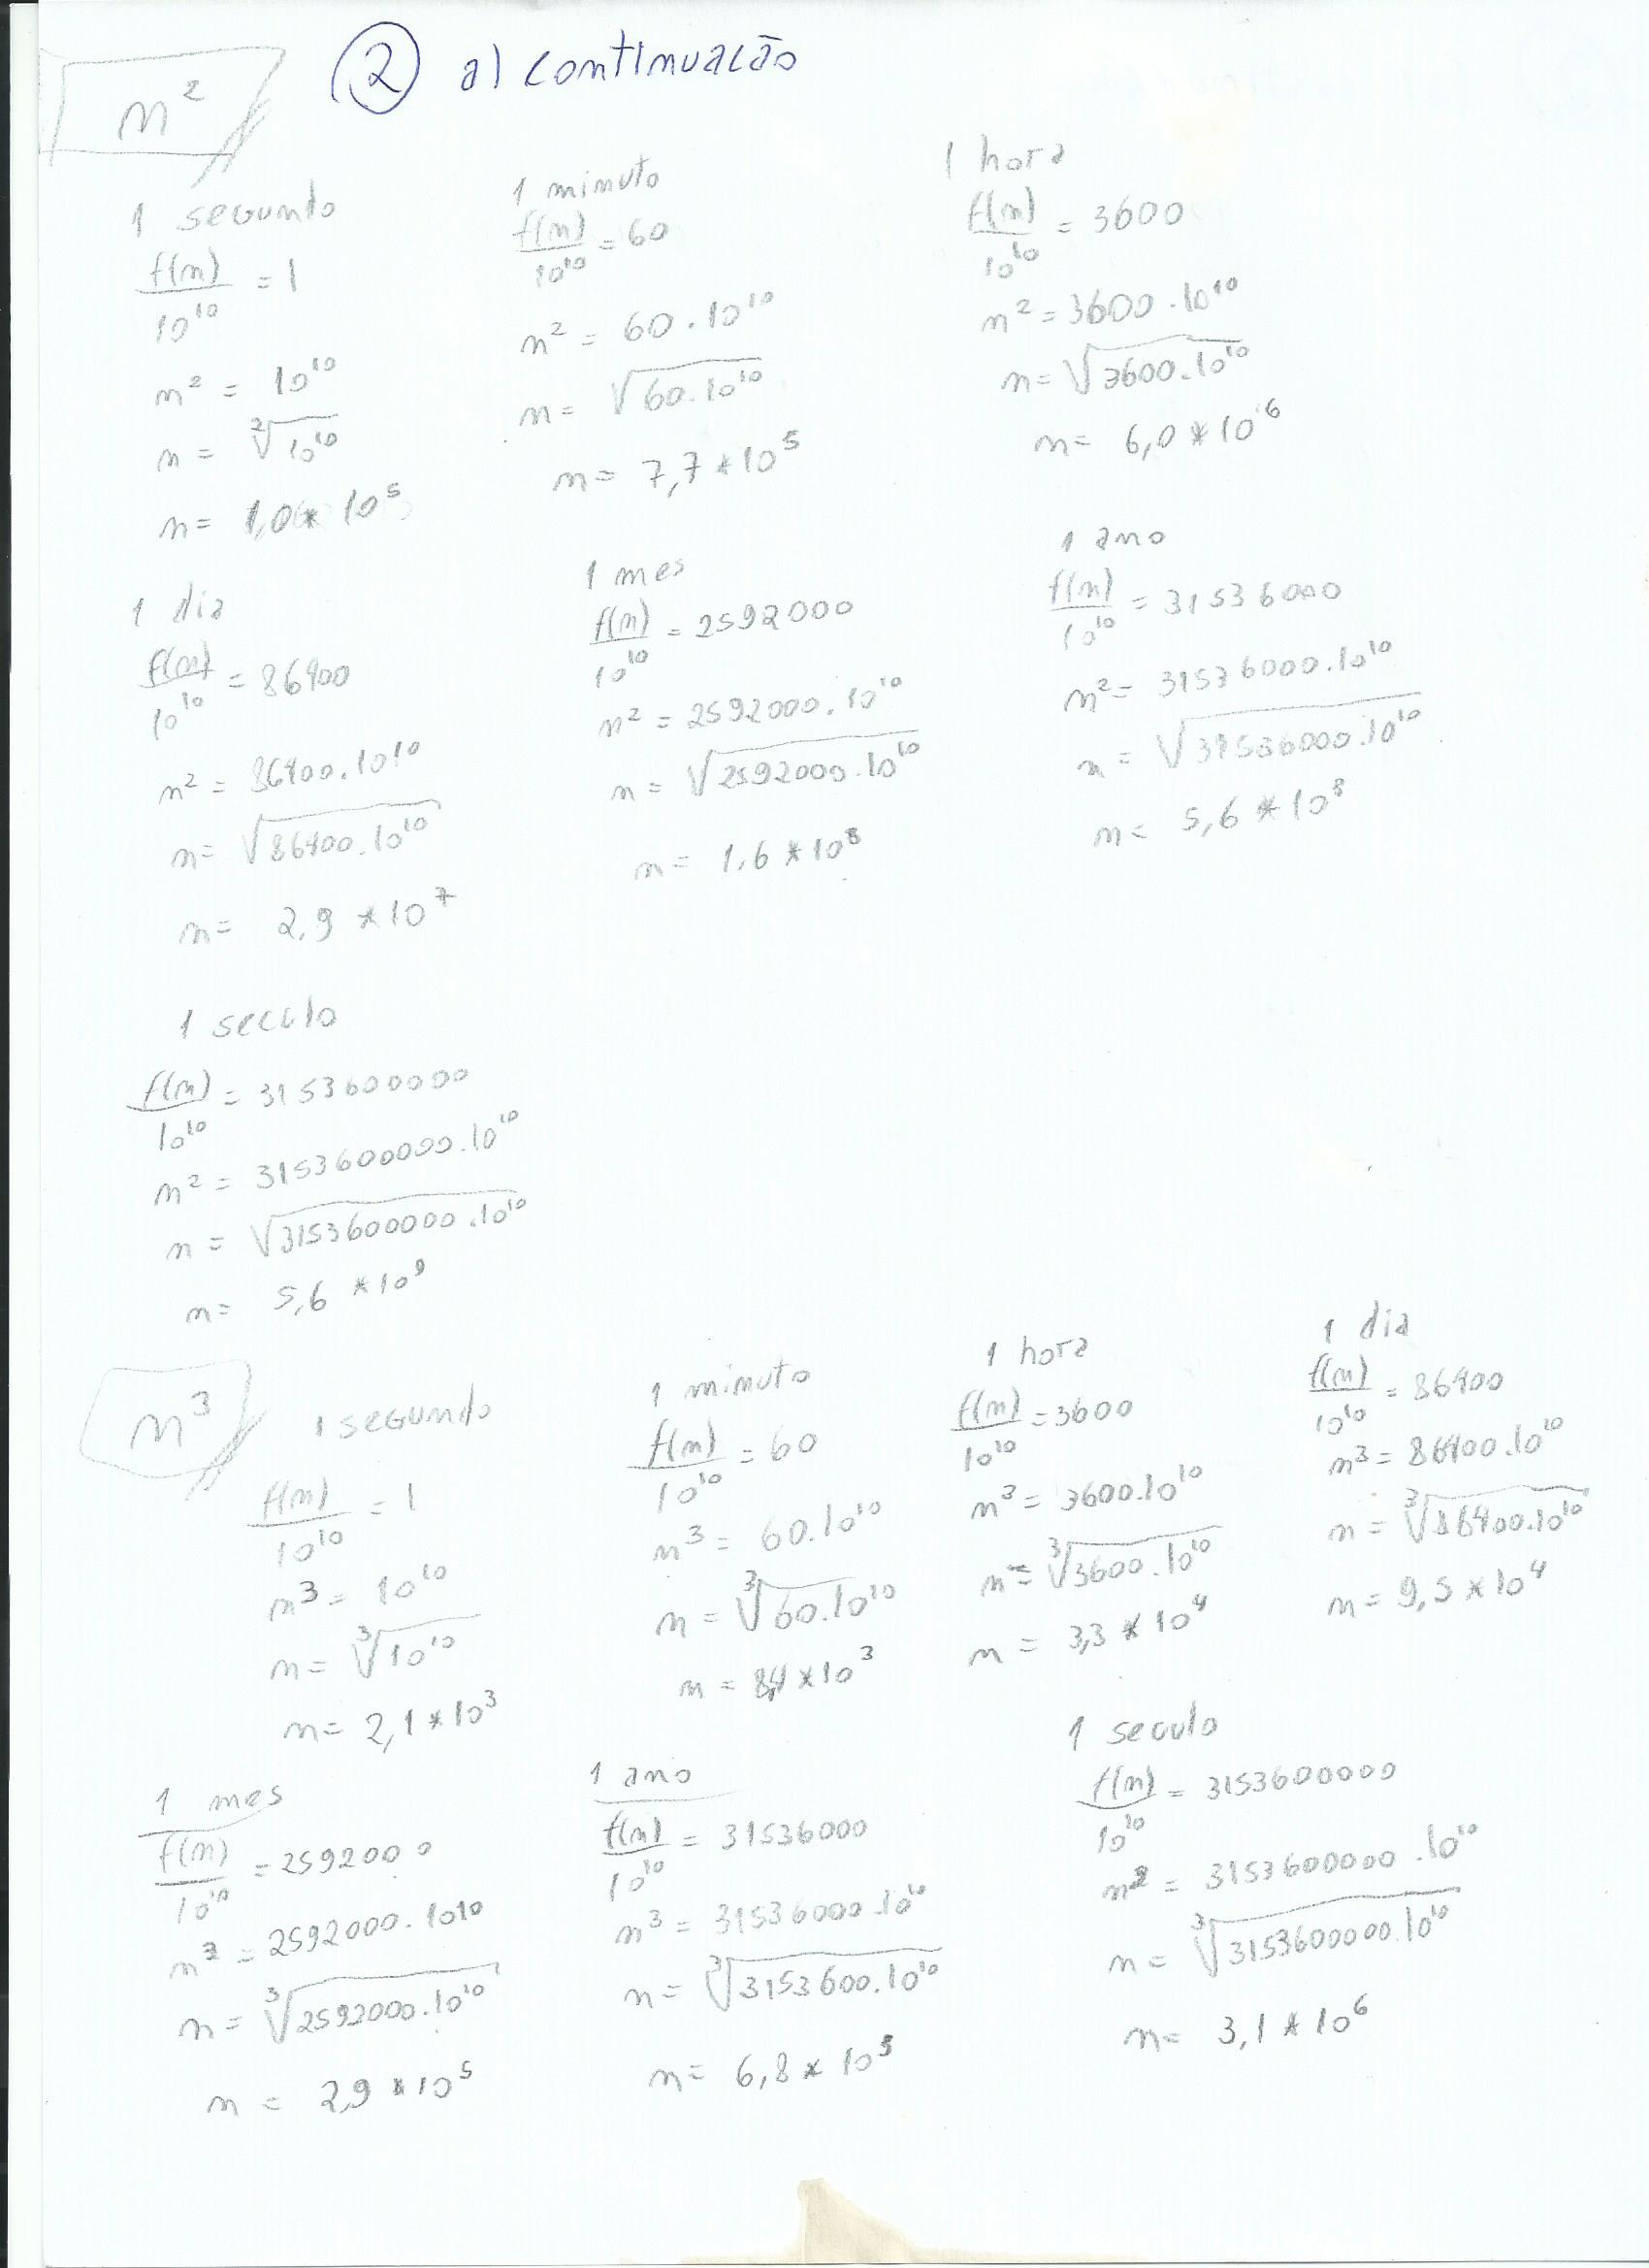 n²
② a) continuacão
1 segundo
f(n)/10¹⁰ = 1
n² = 10¹⁰
n = ²√10¹⁰
n = 1,0 * 10⁵
1 minuto
f(n)/10¹⁰ = 60
n² = 60.10¹⁰
n = √60.10¹⁰
n = 7,7 * 10⁵
1 hora
f(n)/10¹⁰ = 3600
n² = 3600.10¹⁰
n = √3600.10¹⁰
n = 6,0 * 10⁶
1 dia
f(n)/10¹⁰ = 86400
n² = 86400.10¹⁰
n = √86400.10¹⁰
n = 2,9 * 10⁷
1 mes
f(n)/10¹⁰ = 2592000
n² = 2592000.10¹⁰
n = √2592000.10¹⁰
n = 1,6 * 10⁸
1 ano
f(n)/10¹⁰ = 31536000
n² = 31536000.10¹⁰
n = √31536000.10¹⁰
n = 5,6 * 10⁸
1 seculo
f(n)/10¹⁰ = 3153600000
n² = 3153600000.10¹⁰
n = √3153600000.10¹⁰
n = 5,6 * 10⁹
n³
1 segundo
f(n)/10¹⁰ = 1
n³ = 10¹⁰
n = ³√10¹⁰
n = 2,1 * 10³
1 minuto
f(n)/10¹⁰ = 60
n³ = 60.10¹⁰
n = ³√60.10¹⁰
n = 8,4 * 10³
1 hora
f(n)/10¹⁰ = 3600
n³ = 3600.10¹⁰
n = ³√3600.10¹⁰
n = 3,3 * 10⁴
1 dia
f(n)/10¹⁰ = 86400
n³ = 86400.10¹⁰
n = ³√86400.10¹⁰
n = 9,5 * 10⁴
1 mes
f(n)/10¹⁰ = 2592000
n³ = 2592000.10¹⁰
n = ³√2592000.10¹⁰
n = 2,9 * 10⁵
1 ano
f(n)/10¹⁰ = 31536000
n³ = 31536000.10¹⁰
n = ³√3153600.10¹⁰
n = 6,8 * 10⁵
1 seculo
f(n)/10¹⁰ = 3153600000
n³ = 3153600000.10¹⁰
n = ³√3153600000.10¹⁰
n = 3,1 * 10⁶